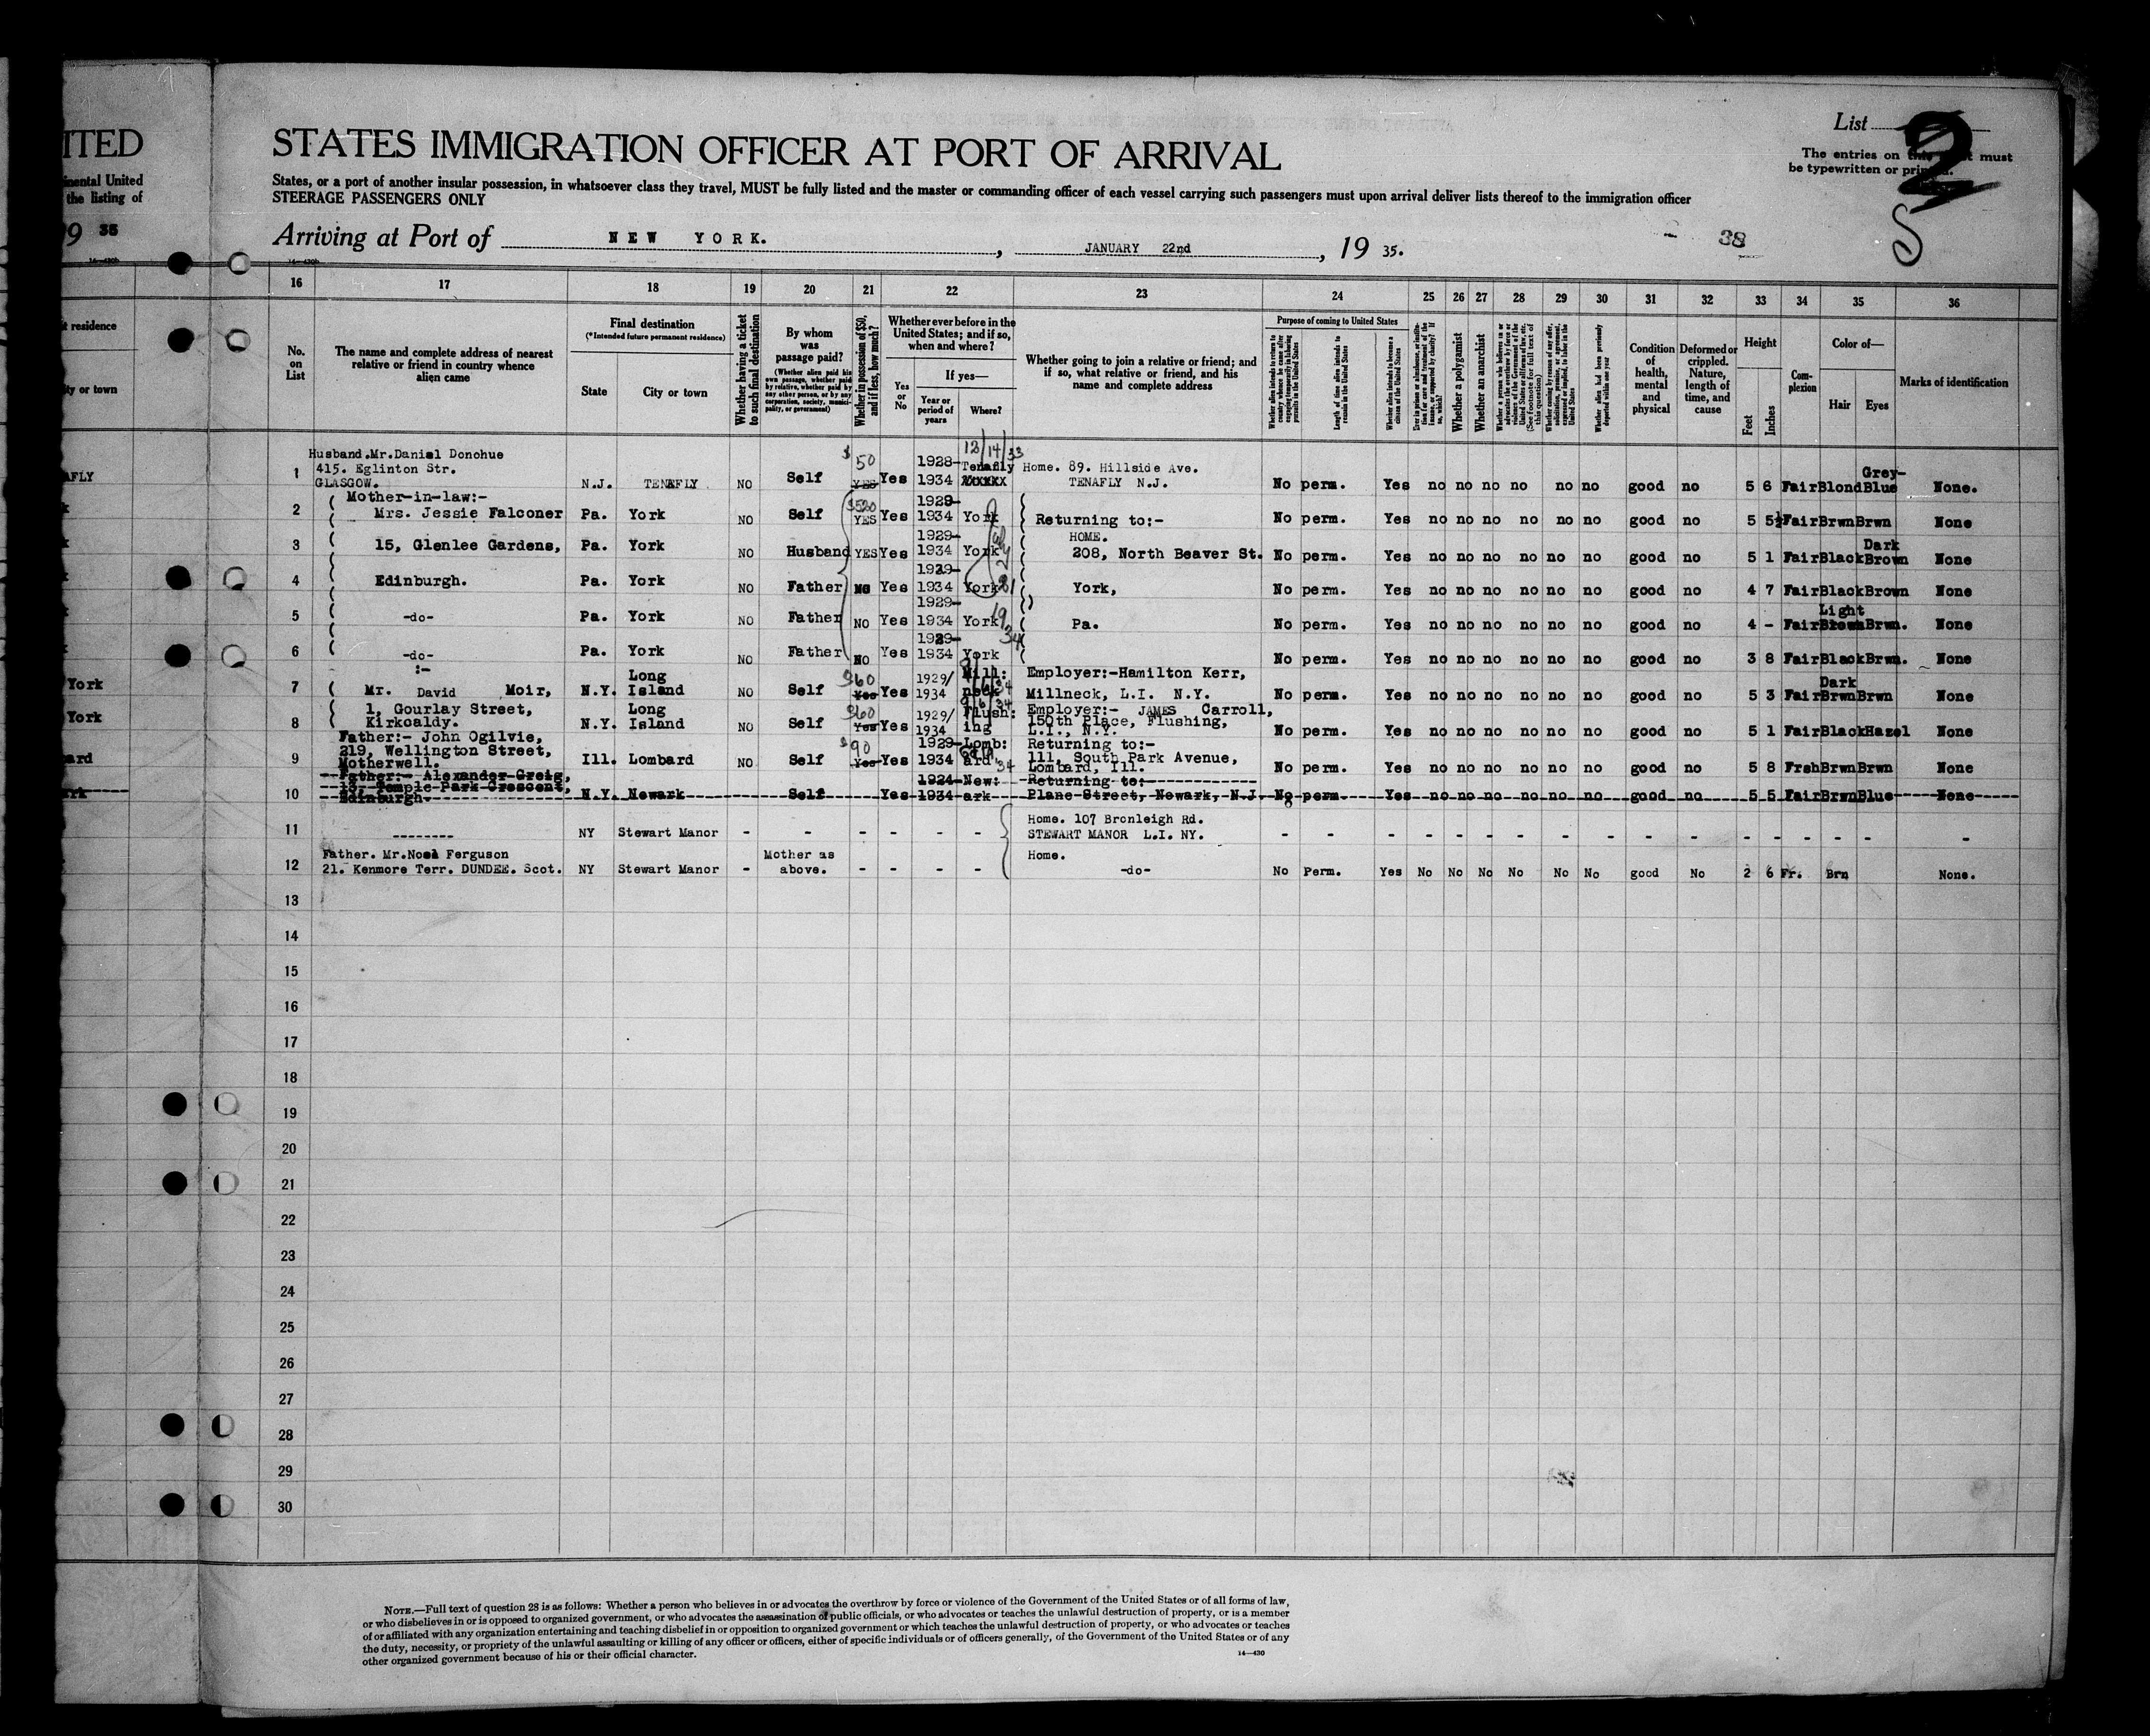 ITED
STATES IMMIGRATION OFFICER AT PORT OF ARRIVAL
List
The entries on must
be typewritten or
2
inental United
the listing of
States, or a port of another insular possession, in whatsoever class they travel, MUST be fully listed and the master or commanding officer of each vessel carrying such passengers must upon arrival deliver lists thereof to the immigration officer
STEERAGE PASSENGERS ONLY
9 35
Arriving at Port of NEW YORK. , JANUARY 22nd , 19 35.
38
16 17 18 19 20 21 22 23 24 25 26 27 28 29 30 31 32 33 34 35 36
t residence
ty or town
No. on List
The name and complete address of nearest relative or friend in country whence alien came
Final destination
(*Intended future permanent residence)
State
City or town
Whether having a ticket to such final destination
By whom was passage paid?
(Whether alien paid his own passage, whether paid by relative, whether paid by any other person, or by any corporation, society, municipality, or government)
Whether in possession of $50, and if less, how much?
Whether ever before in the United States; and if so, when and where?
Yes or No
If yes—
Year or period of years
Where?
Whether going to join a relative or friend; and if so, what relative or friend, and his name and complete address
Purpose of coming to United States
Length of time alien intends to remain in the United States
Whether alien intends to become a citizen of the United States
Whether a polygamist
Whether an anarchist
(See footnote for full text of this question)
Condition of health, mental and physical
Deformed or crippled. Nature, length of time, and cause
Height
Feet
Inches
Complexion
Color of—
Hair
Eyes
Marks of identification
AFLY
1 Husband.Mr.Daniel Donohue
415. Eglinton Str.
GLASGOW. N.J. TENAFLY NO Self $ 50 YES Yes 1928-1934 12/14/33 Tenafly XXXXX Home. 89. Hillside Ave. TENAFLY N.J. No perm. Yes no no no no no no good no 5 6 Fair Blond Grey-Blue None.
2 Mother-in-law:-
Mrs. Jessie Falconer Pa. York NO Self YES Yes 1929-1934 York Returning to:- No perm. Yes no no no no no no good no 5 5½ Fair Brwn Brwn None
3 15, Glenlee Gardens, Pa. York NO Husband YES Yes 1929-1934 York HOME. 208, North Beaver St. No perm. Yes no no no no no no good no 5 1 Fair Black Dark Brown None
4 Edinburgh. Pa. York NO Father NO Yes 1929-1934 York York, No perm. Yes no no no no no no good no 4 7 Fair Black Brown None
5 -do- Pa. York NO Father NO Yes 1929-1934 York Pa. No perm. Yes no no no no no no good no 4 - Fair Light Brown Brwn. None
6 -do- Pa. York NO Father NO Yes 1929-1934 York No perm. Yes no no no no no no good no 3 8 Fair Black Brwn. None
York
7 :-
Mr. David Moir, N.Y. Long Island NO Self 360 Yes Yes 1929/1934 Mill: neck Employer:-Hamilton Kerr, Millneck, L.I. N.Y. No perm. Yes no no no no no no good no 5 3 Fair Dark Brwn Brwn None
York
8 1, Gourlay Street,
Kirkcaldy. N.Y. Long Island NO Self 360 Yes Yes 1929/1934 Flush: ing Employer:- JAMES Carroll, 150th Place, Flushing, L.I., N.Y. No perm. Yes no no no no no no good no 5 1 Fair Black Hazel None
ard
9 Father:- John Ogilvie,
219, Wellington Street,
Motherwell. Ill. Lombard NO Self $90 Yes Yes 1929-1934 Lomb: ard. Returning to:- 111, South Park Avenue, Lombard, Ill. No perm. Yes no no no no no no good no 5 8 Frsh Brwn Brwn None
10 Father:- Alexander Greig,
13- Temple Park Crescent,
Edinburgh. N.Y. Newark Self Yes 1924-1934 New: ark Returning to:- Plane Street, Newark, N.J. No perm Yes no no no no no no good no 5 5 Fair Brwn Blue None
11 -------- NY Stewart Manor - - - - - - Home. 107 Bronleigh Rd. STEWART MANOR L.I. NY. - - - - - - - - - - - - - - - - -
12 Father. Mr.Noel Ferguson
21. Kenmore Terr. DUNDEE. Scot. NY Stewart Manor - Mother as above. - - - - Home. -do- No Perm. Yes No No No No No No good No 2 6 Fr. Brn None.
13
14
15
16
17
18
19
20
21
22
23
24
25
26
27
28
29
30
NOTE.—Full text of question 28 is as follows: Whether a person who believes in or advocates the overthrow by force or violence of the Government of the United States or of all forms of law,
or who disbelieves in or is opposed to organized government, or who advocates the assassination of public officials, or who advocates or teaches the unlawful destruction of property, or is a member
of or affiliated with any organization entertaining and teaching disbelief in or opposition to organized government or which teaches the unlawful destruction of property, or who advocates or teaches
the duty, necessity, or propriety of the unlawful assaulting or killing of any officer or officers, either of specific individuals or of officers generally, of the Government of the United States or of any
other organized government because of his or their official character.
14—430